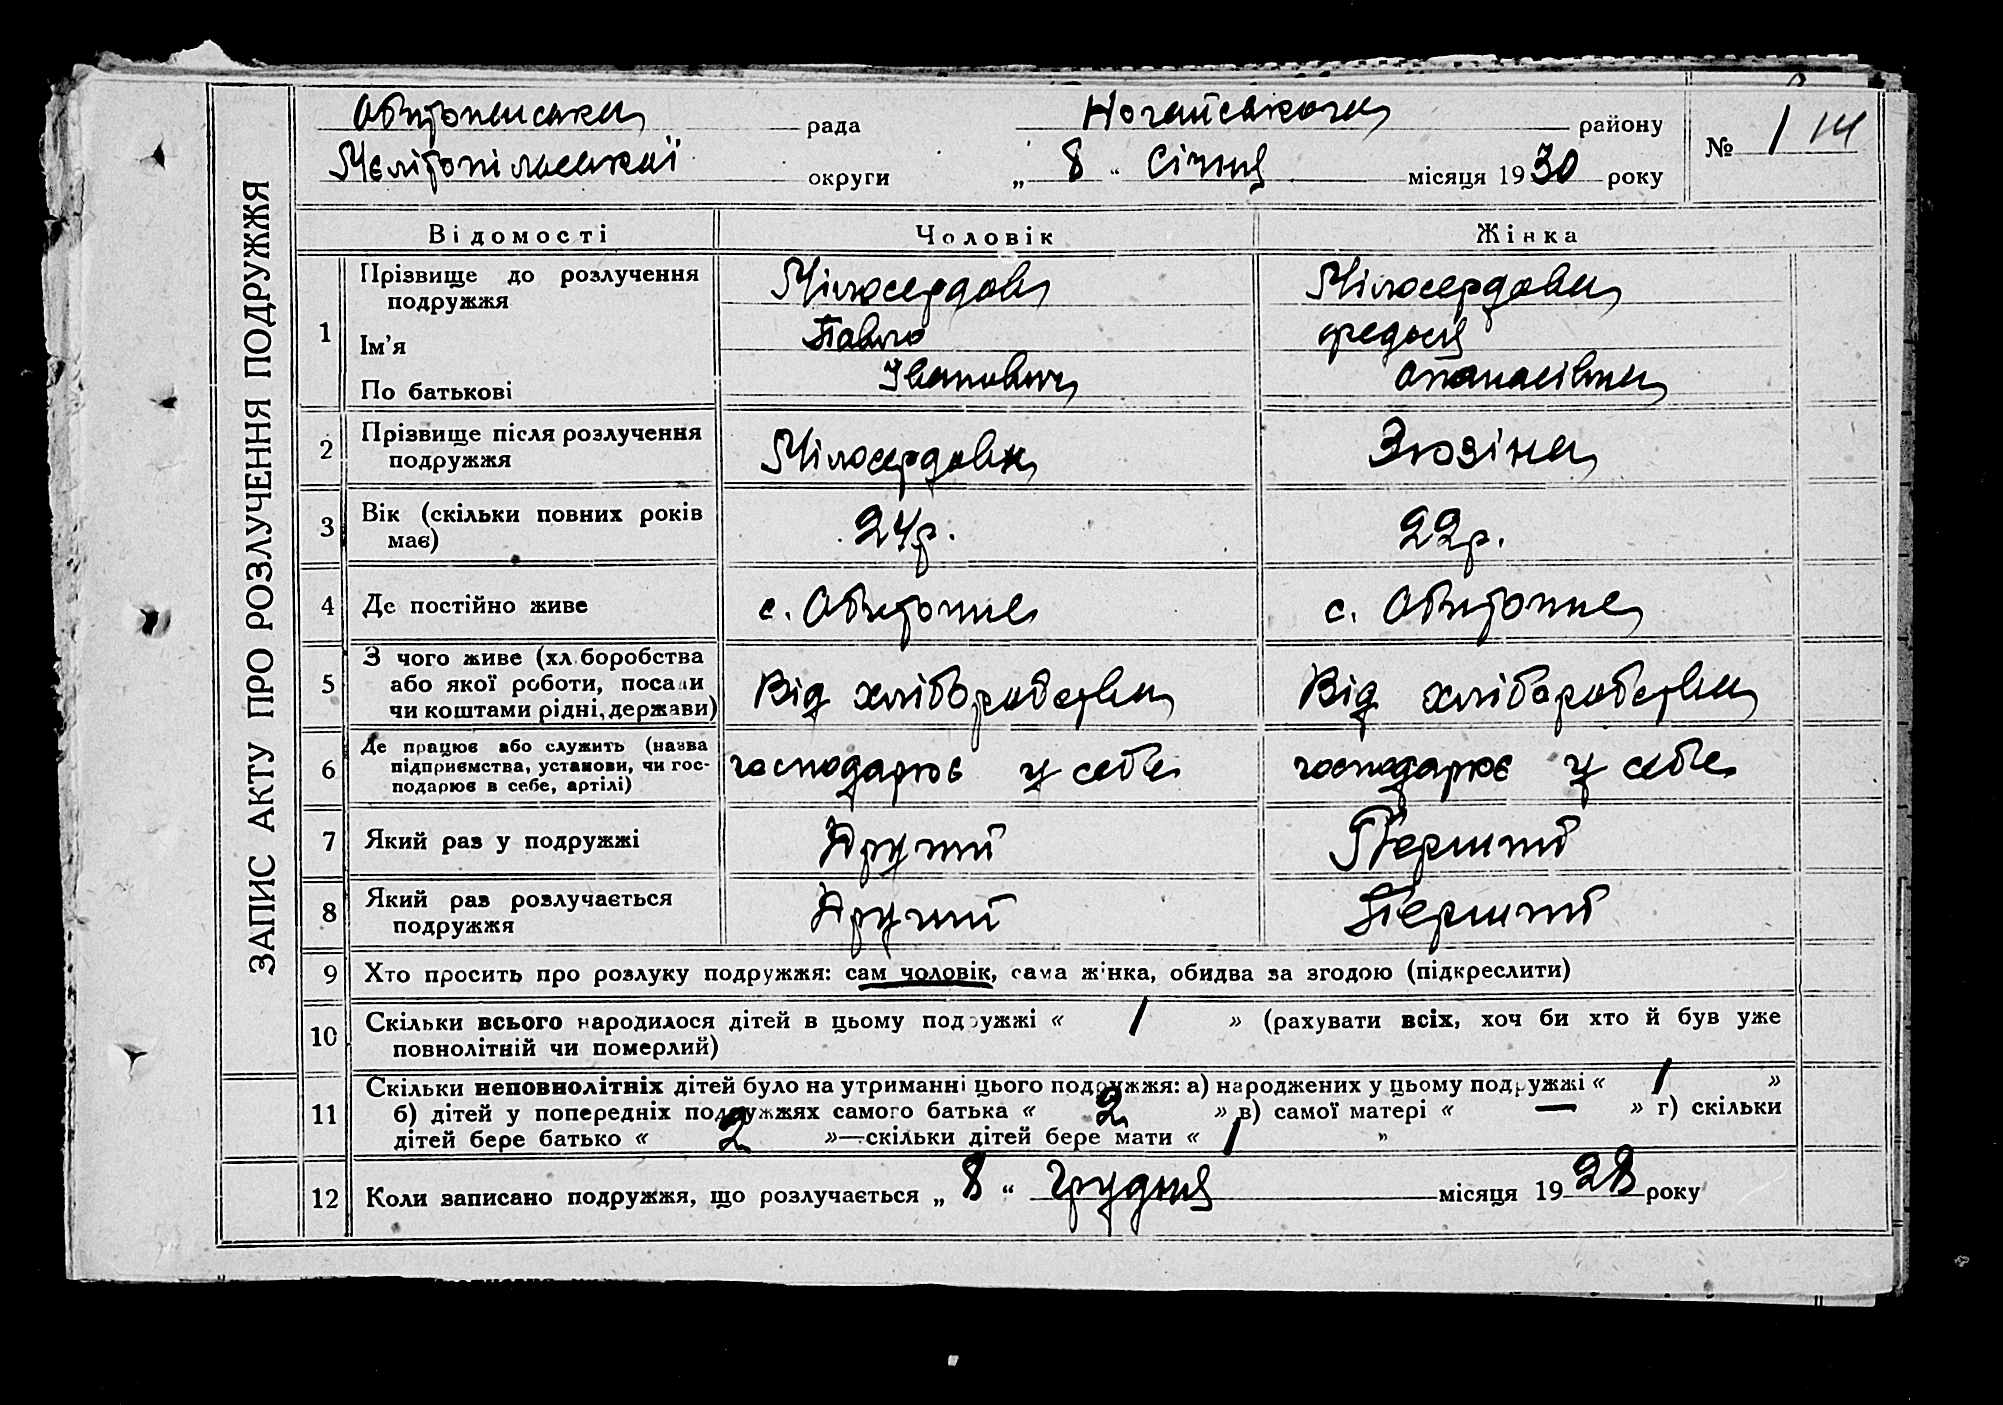 ЗАПИС АКТУ ПРО РОЗЛУЧЕННЯ ПОДРУЖЖЯ
Обиточенська рада Ногайського району № 1
Мелітопільської округи „ 8 “ Січня місяця 1930 року
Відомості Чоловік Жінка
1 Прізвище до розлучення подружжя Мілосердов Мілосердова
Ім'я Павло Федося
По батькові Іванович Опанасівна
2 Прізвище після розлучення подружжя Мілосердов Зюзіна
3 Вік (скільки повних років має) 24р. 22р.
4 Де постійно живе с. Обиточне с. Обиточне
5 З чого живе (хліборобства або якої роботи, посади чи коштами рідні, держави) Від хліборобства Від хліборобства
6 Де працює або служить (назва підприємства, установи, чи господарює в себе, артілі) господарює у себе господарює у себе
7 Який раз у подружжі Другий Перший
8 Який раз розлучається подружжя Другий Перший
9 Хто просить про розлуку подружжя: сам чоловік, сама жінка, обидва за згодою (підкреслити)
10 Скільки всього народилося дітей в цьому подружжі « 1 » (рахувати всіх, хоч би хто й був уже
повнолітній чи померлий)
11 Скільки неповнолітніх дітей було на утриманні цього подружжя: а) народжених у цьому подружжі « 1 »
б) дітей у попередніх подружжях самого батька « 2 » в) самої матері « — » г) скільки
дітей бере батько « 2 »—скільки дітей бере мати « 1 »
12 Коли записано подружжя, що розлучається „ 8 “ грудня місяця 1928 року